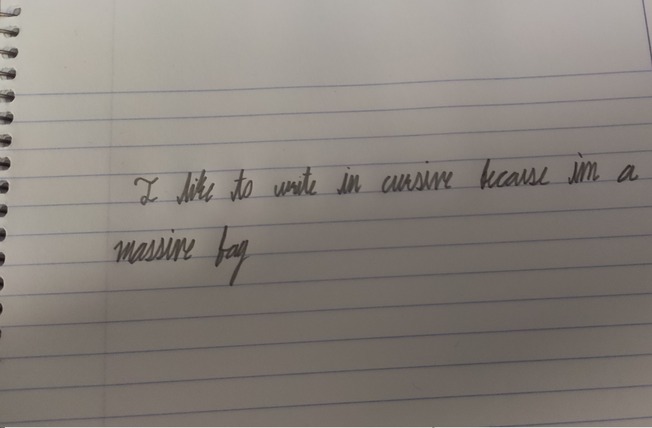 I like to write in cursive becaise im a
massive fag